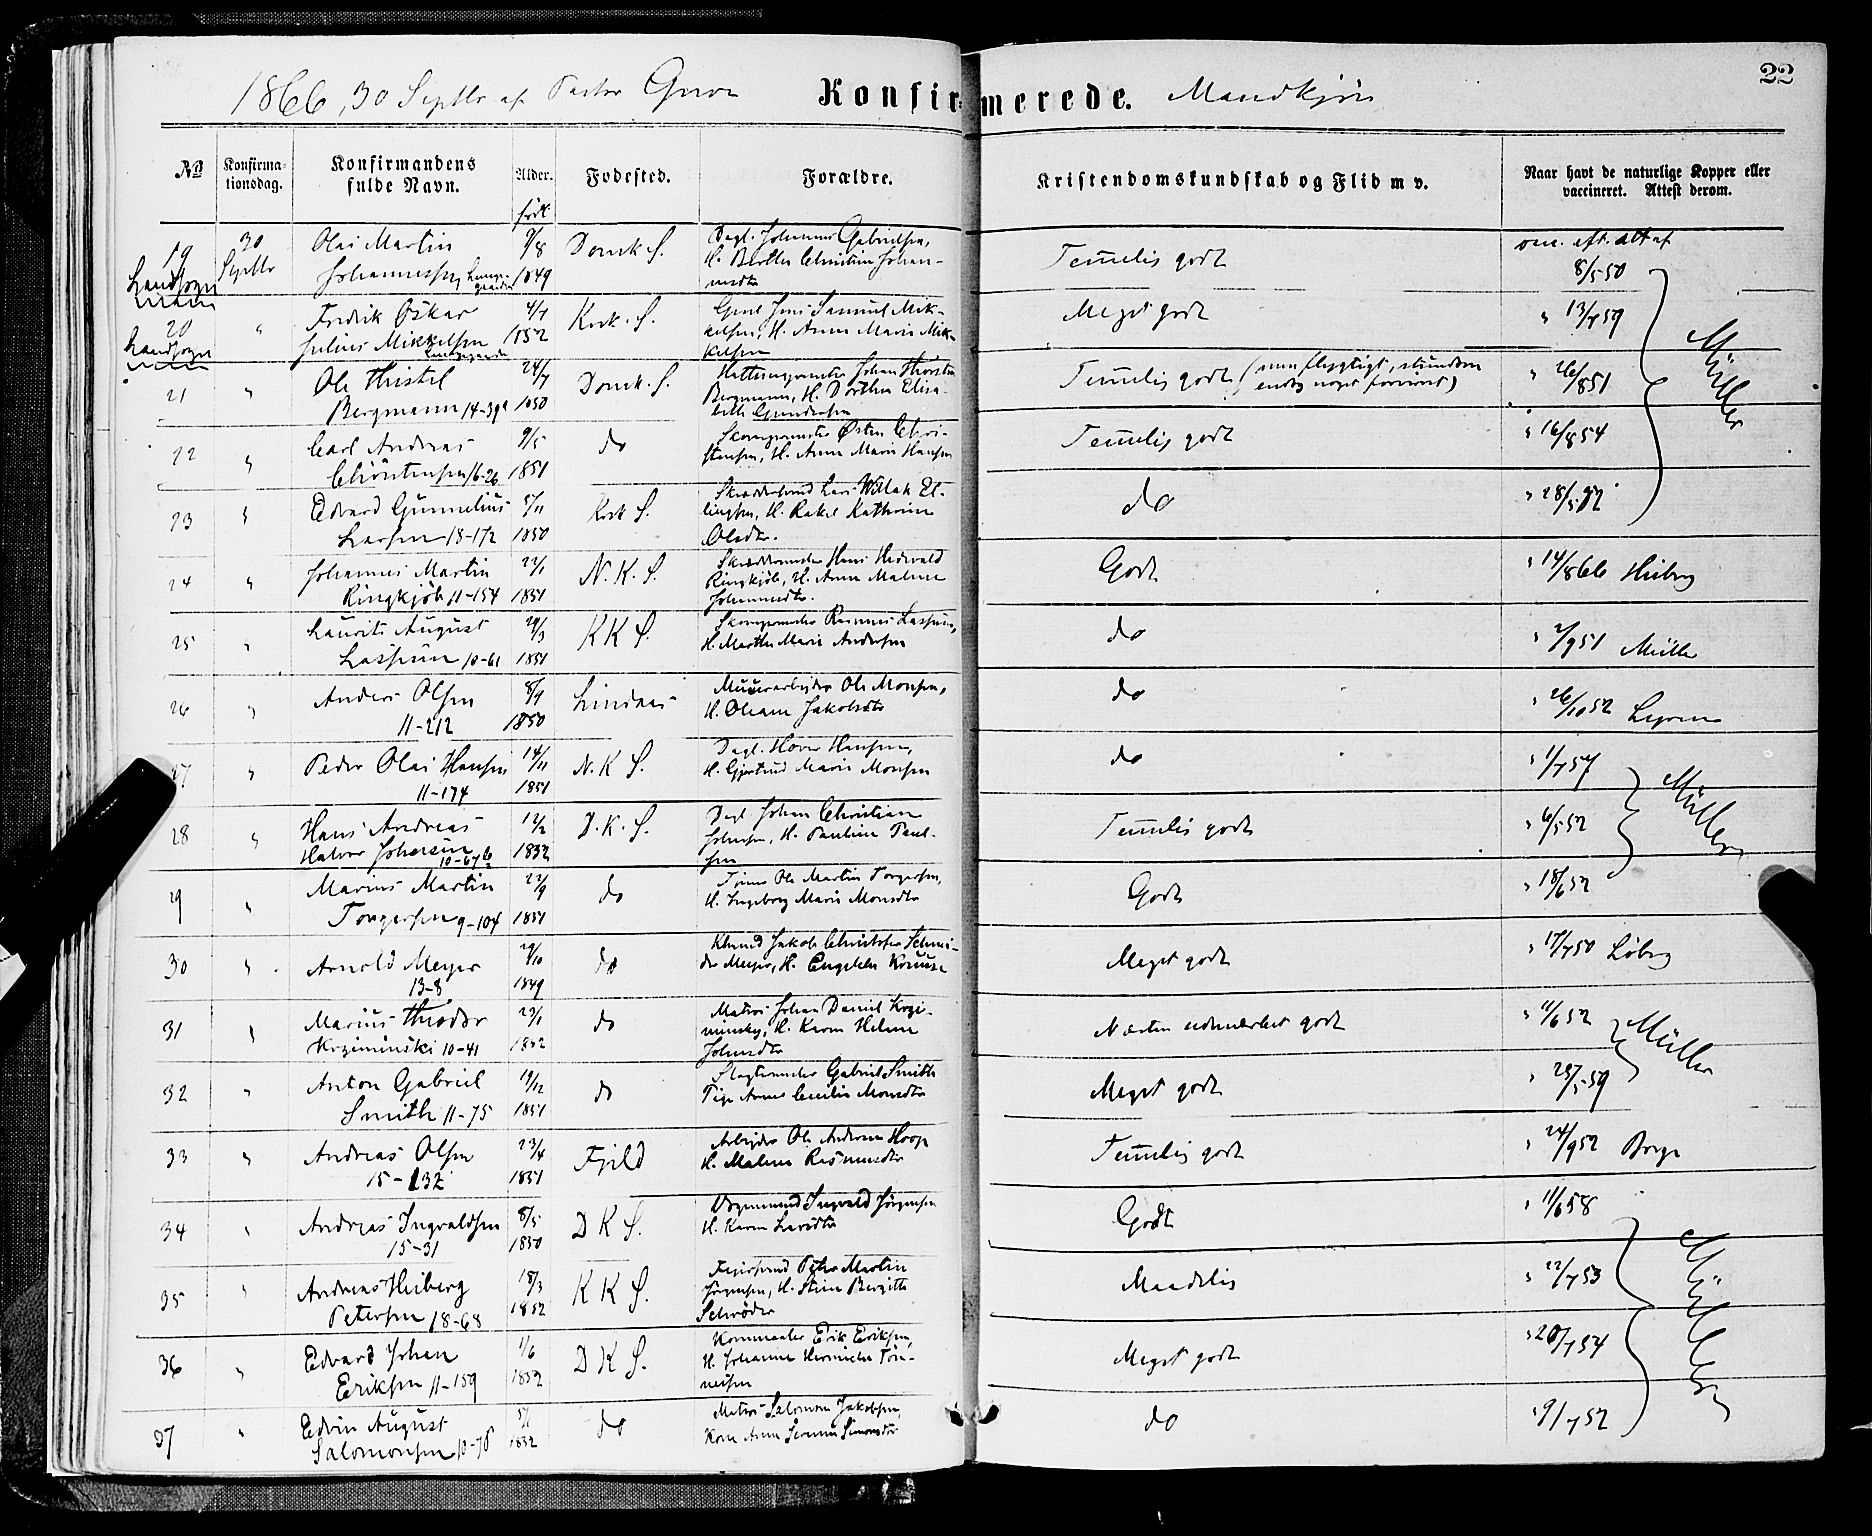 1866, 30 Septbr af Pastor
Konfirmerede. Mandkjøn
22
No
Konfirma-
tionsdag.
Konfirmandens
fulde Navn.
Alder.
født
Fødested.
Forældre.
Kristendomskundskab og Flid m v.
Naar havt de naturlige Kopper eller
vaccineret. Attest derom.
19 30 Septbr
Landsogn
Olai Martin
Johannessen
9/8
1849
Domk. S.
Dagl. Johannes Gabrielsen,
H. Berthe Christine Johan-
nesdtr
Temmelig godt
vac. eft. att af
8/5 50
20 "
Landsogn
Fredrik Oskar
Julius Mikkelsen
4/1
1852
Kork. S.
Jens Samuel Mik-
kelsen, H. Anne Marie Mik-
kelsen
Meget godt
" 13/7 59
21 "
Ole Thistel
Bergmann 14-39a
24/7
1850
Domk. S.
Hattemagermester Johan Thorsten
Bergmann, H. Dorthea Elisa-
beth Gundersen
Temmelig godt (men flygtigt, stundom
endog noget forvirret)
" 26/8 51
Müller
22 "
Carl Andreas
Christensen 16-26
9/5
1851
do
Skomagermester Østen Chri-
stensen, H. Anne Marie Hansen
Temmelig godt
" 16/8 54
23 "
Edvard Gunnelius
Larsen 15-172
5/11
1850
Kork S.
Lars Willak El-
lingsen, H. Rakel Kathrine
Olsdtr.
do
" 28/5 52
24 "
Johannes Martin
Ringkjøb 11-154
22/1
1851
N. K. S.
Skræddermester Hans Hedevald
Ringkjøb, H. Anne Malene
Johannesdtr.
Godt
" 14/8 66 Heiberg
25 "
Laurits August
Lassen 10-61
29/3
1851
K K S.
Skomagermester Rasmus Lassen,
H. Marthe Marie Andersen
do
" 2/9 51 Müller
26 "
Anders Olsen
11-212
8/9
1850
Lindaas
Muurarbejder Ole Monsen,
H. Oleane Jakobsdtr
do
" 26/10 52
27 "
Peder Olai Hansen
11-174
14/11
1851
N. K S.
Dagl. Haver Hansen,
H. Gjertrud Marie Monsen
do
" 1/7 57
28 "
Hans Andreas
Halvor Johnsen
10-67b
12/2
1852
D. K. S.
Dagl Johan Christian
Johnsen, H. Pauline Paul-
sen
Temmelig godt
" 6/5 52
Müller
29 "
Marius Martin
Torgersen 9-104
22/9
1851
do
Ole Martin Torgersen,
H. Ingeborg Marie Monsdtr
Godt
" 18/6 52
30 "
Arnold Meyer
13-8
29/10
1849
do
Kbmnd Jakob Christofer Schnei-
der Meyer, H. Engelche Krause
Meget godt
" 17/7 50 Løberg
31 "
Marius Theodor
Krziminski 10-41
29/1
1852
do
Matros Johan Daniel Krzi-
minsky, H. Karen Helene
Johnsdtr
Næsten udmærket godt
" 11/6 52
Müller
32 "
Anton Gabriel
Smith 11-75
19/12
1851
do
Slagtermester Gabriel Smith
Pige Anne Cecilie Monsdtr
Meget godt
" 237/5 59
33 "
Andreas Olsen
15-132
23/4
1851
Fjeld
Arbejder Ole Andersen Hoop
H. Malene Rasmusdtr
Temmelig godt
" 24/9 52 Borge
34 "
Andreas Ingvaldsen
15-31
8/5
1850
D K S.
Ingvald Jørgensen
H. Karen Larsdtr
Godt
" 11/6 58
35 "
Andreas Heiberg
Petersen 18-68
18/3
1852
K K S.
Peter Martin
Jørgensen, H. Stine Bergitte
Schrøder
Maadelig
" 22/7 53
Müller
36 "
Edvard Johan
Eriksen 11-159
1/6
1852
D K S.
Kornmaaler Erik Eriksen,
H. Johanne Hermiche Tøn-
nesen
Meget godt
" 20/7 54
37 "
Edvin August
Salomonsen 10-78
5/1
1852
do
Matros Salomon Jakobsen,
Kone Anne Serene Simonsdtr
do
" 9/7 52